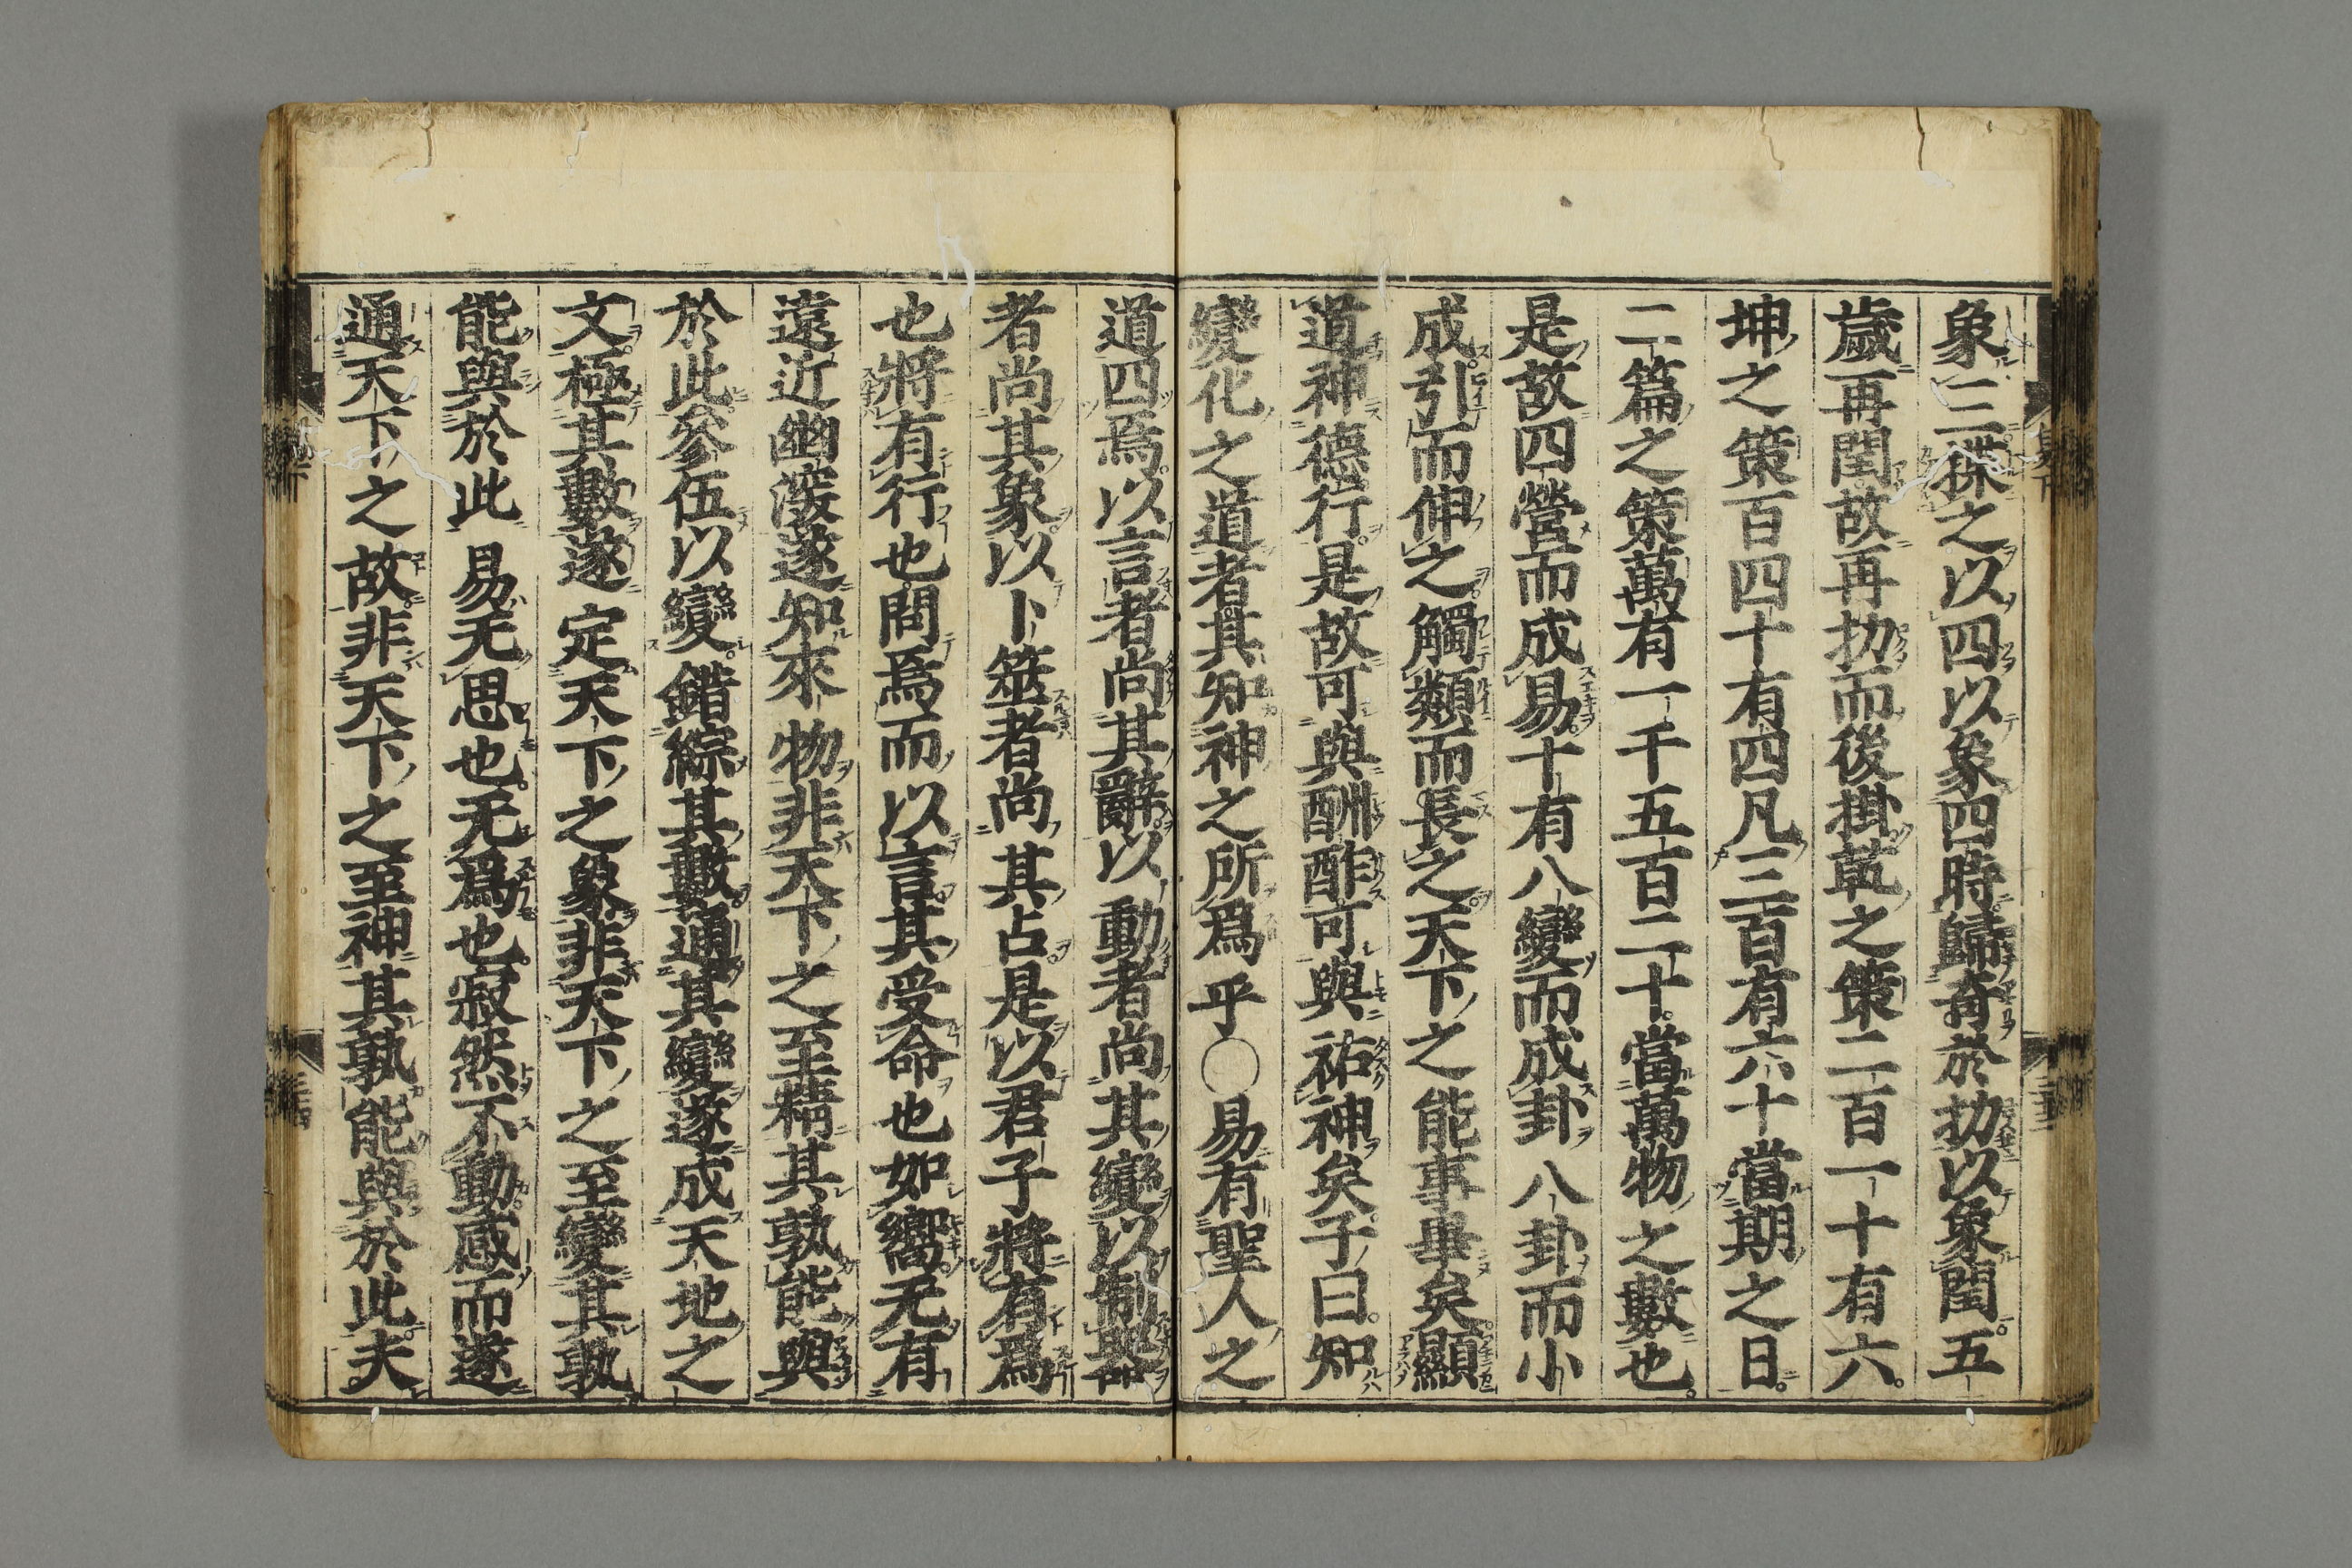 象三揲之以四以象四時歸奇於扐以象閏五
歲再閏故再扐而後掛乾之策二百一十有六
坤之策百四十有四凡三百有六十當期之日
二篇之策萬有一千五百二十當萬物之數也
是故四營而成易十有八變而成卦八卦而小
成引而伸之觸類而長之天下之能事畢矣顯
道神德行是故可與酬酢可與祐神矣子曰知
變化之道者其知神之所爲乎○易有聖人之
道四焉以言者尚其辭以動者尚其變以制器
者尚其象以卜筮者尚其占是以君子將有爲
也將有行也問焉而以言其受命也如嚮无有
遠近幽深遂知來物非天下之至精其孰能與
於此參伍以變錯綜其數通其變遂成天地之
文極其數遂定天下之象非天下之至變其孰
能與於此易无思也无爲也寂然不動感而遂
通天下之故非天下之至神其孰能與於此夫